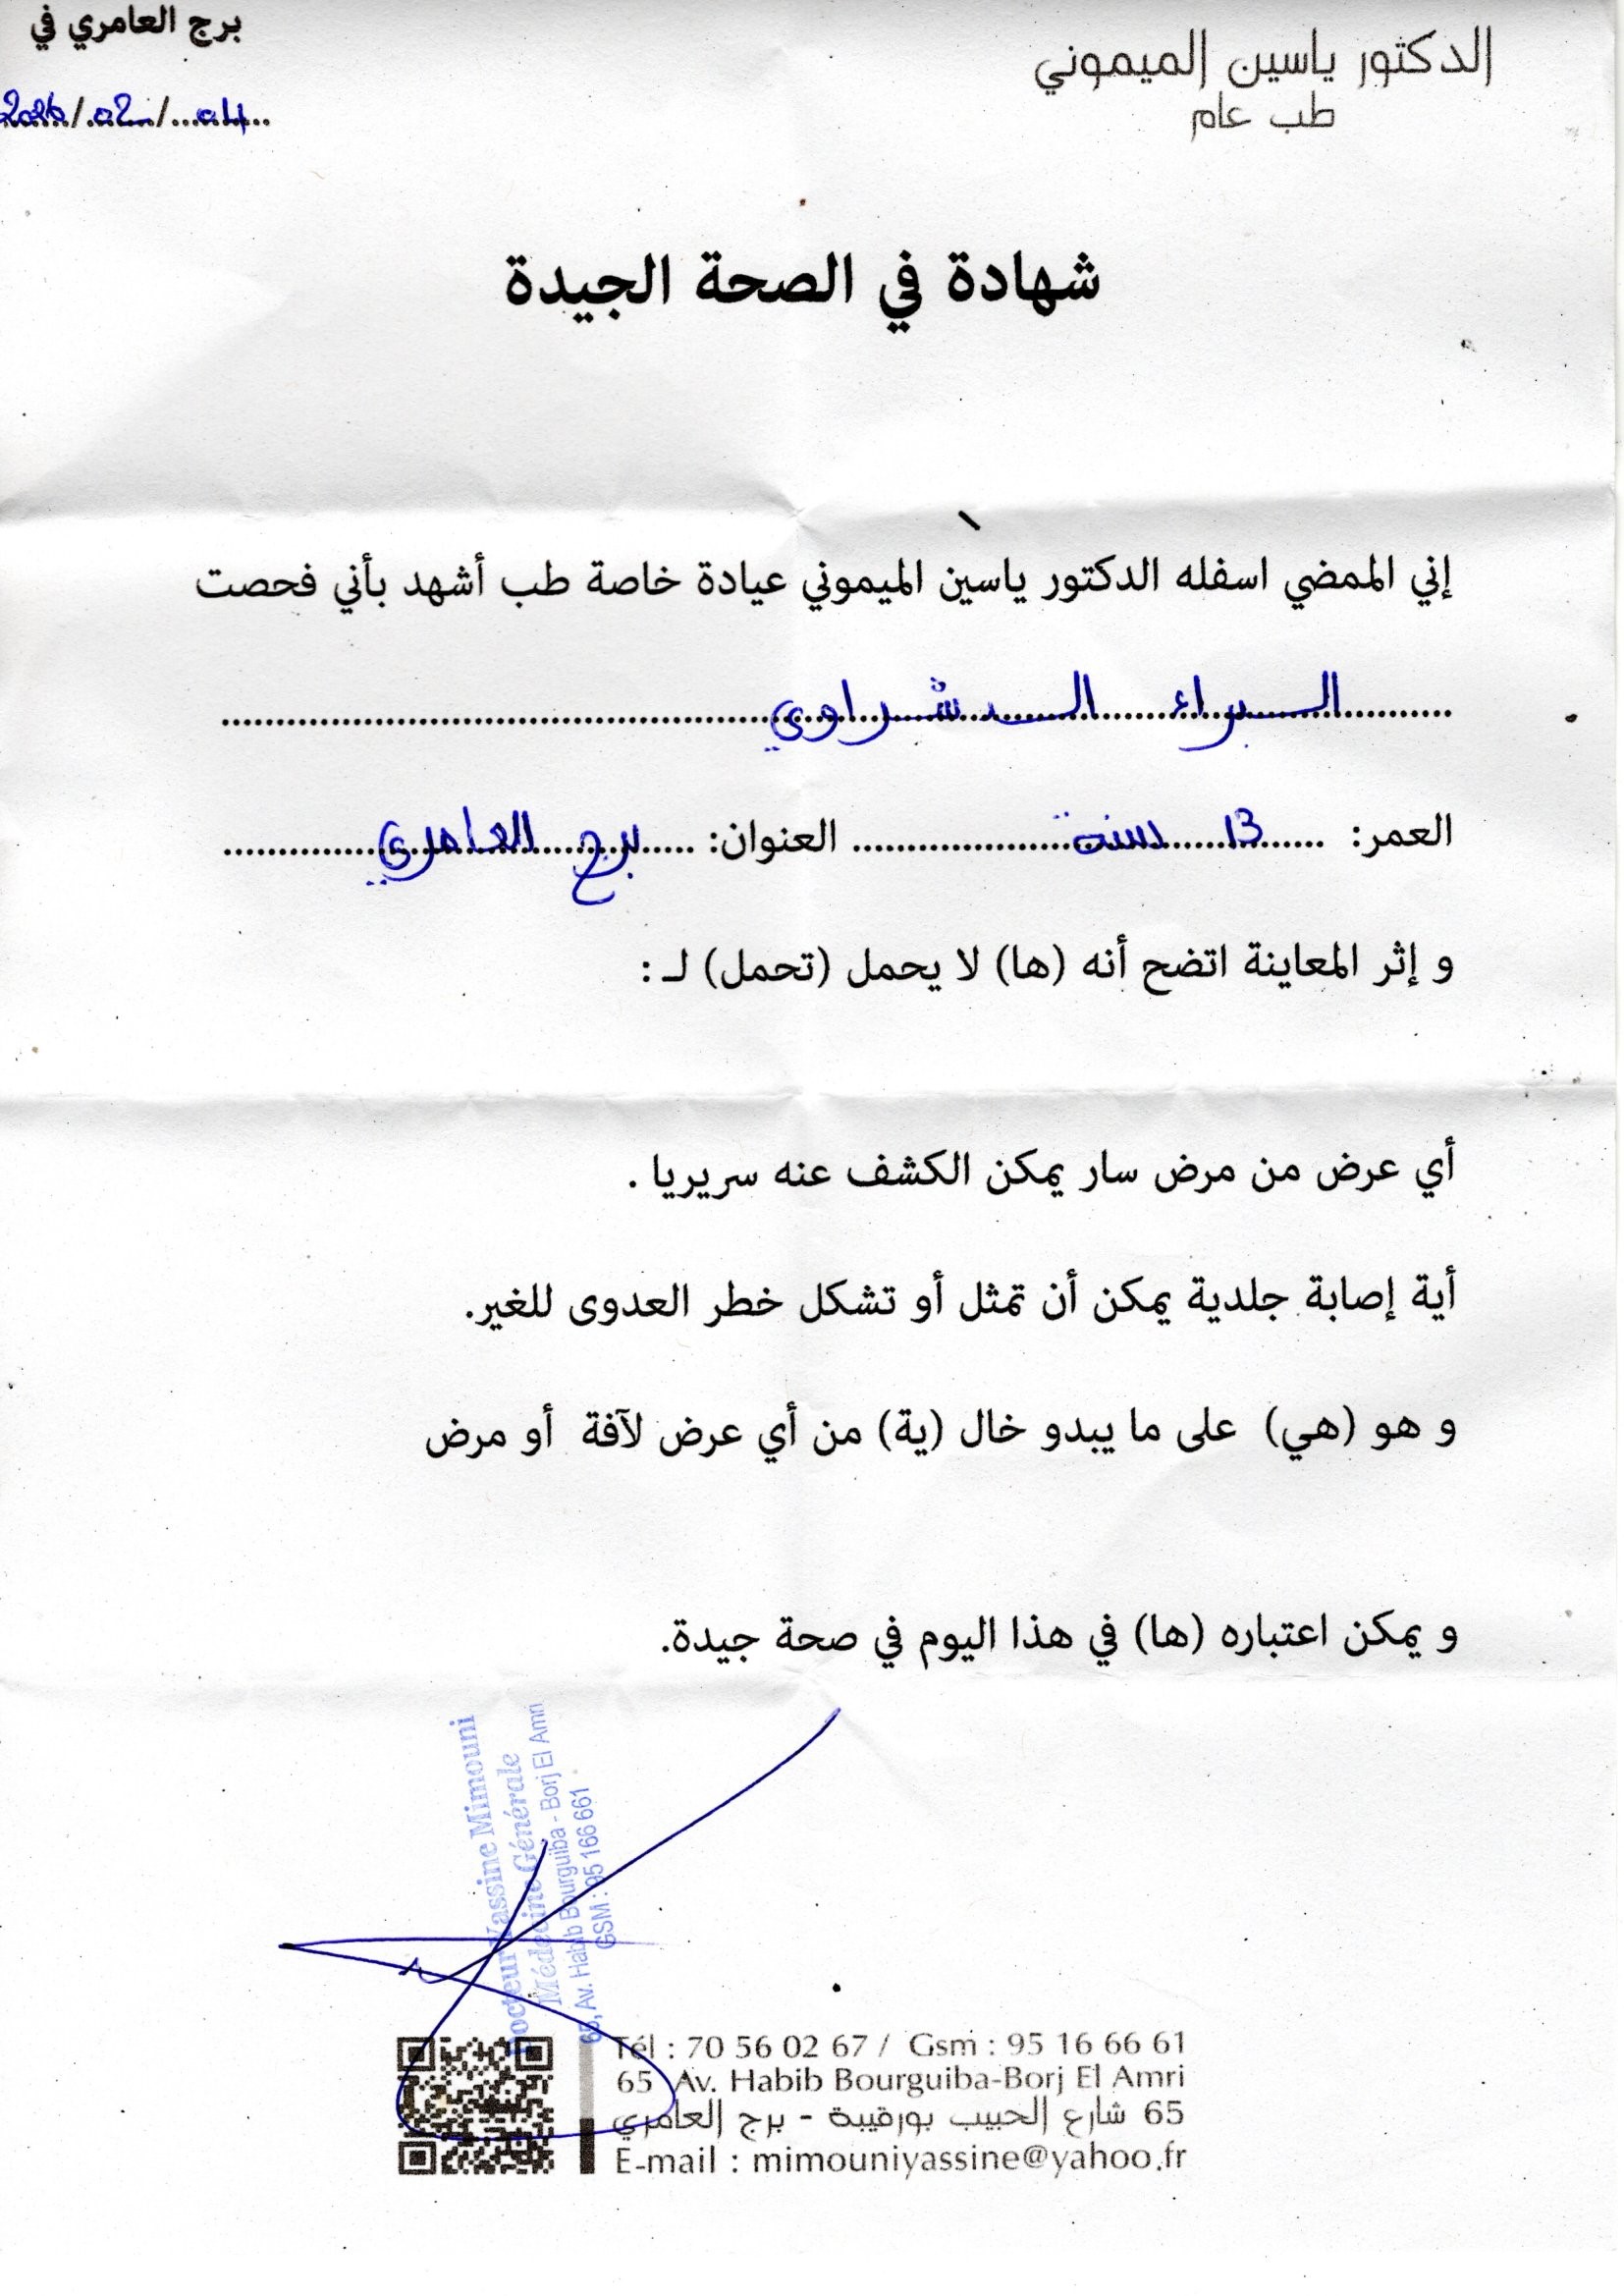 الدكتور ياسين الميموني
طب عام
برج العامري في
04/02/2026
شهادة في الصحة الجيدة
إني الممضي اسفله الدكتور ياسين الميموني عيادة خاصة طب أشهد بأني فحصت
البراء الدشراوي
العمر: 13 سنة العنوان: برج العامري
و إثر المعاينة اتضح أنه (ها) لا يحمل (تحمل) لـ :
أي عرض من مرض سار يمكن الكشف عنه سريريا .
أية إصابة جلدية يمكن أن تمثل أو تشكل خطر العدوى للغير.
و هو (هي) على ما يبدو خال (ية) من أي عرض لآفة أو مرض
و يمكن اعتباره (ها) في هذا اليوم في صحة جيدة.
Docteur Yassine Mimouni
Médecine Générale
65, Av. Habib Bourguiba - Borj El Amri
GSM : 95 166 661
Tél : 70 56 02 67 / Gsm : 95 16 66 61
65 Av. Habib Bourguiba-Borj El Amri
65 شارع الحبيب بورقيبة - برج العامري
E-mail : mimouniyassine@yahoo.fr